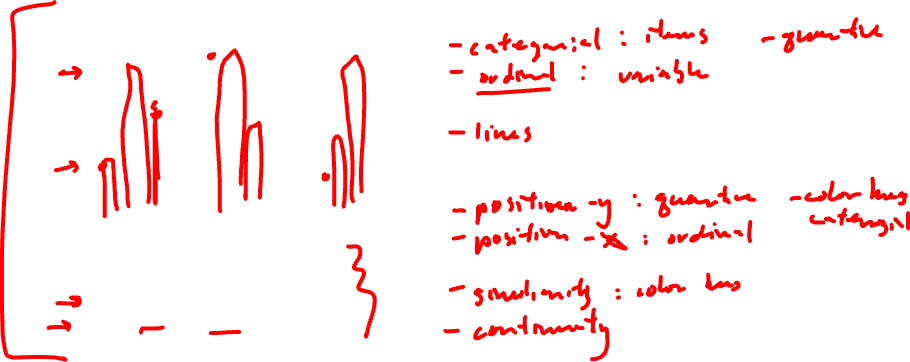 - categorical : items - quantitve
- ordinal : variable
- lines
- position -y : quantitve - color hue
categorical
- position - x : ordinal
- similarity : color hue
- continuity